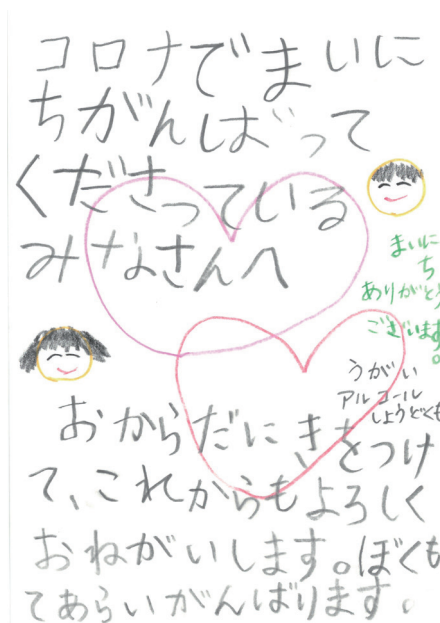 コロナでまいに
ちがんばって
くださっている
みなさんへ
まいに
ち
ありがとう
ございます。
うがい
アルコール
しょうどくも
おからだにきをつけ
て、これからもよろしく
おねがいします。ぼくも
てあらいがんばります。